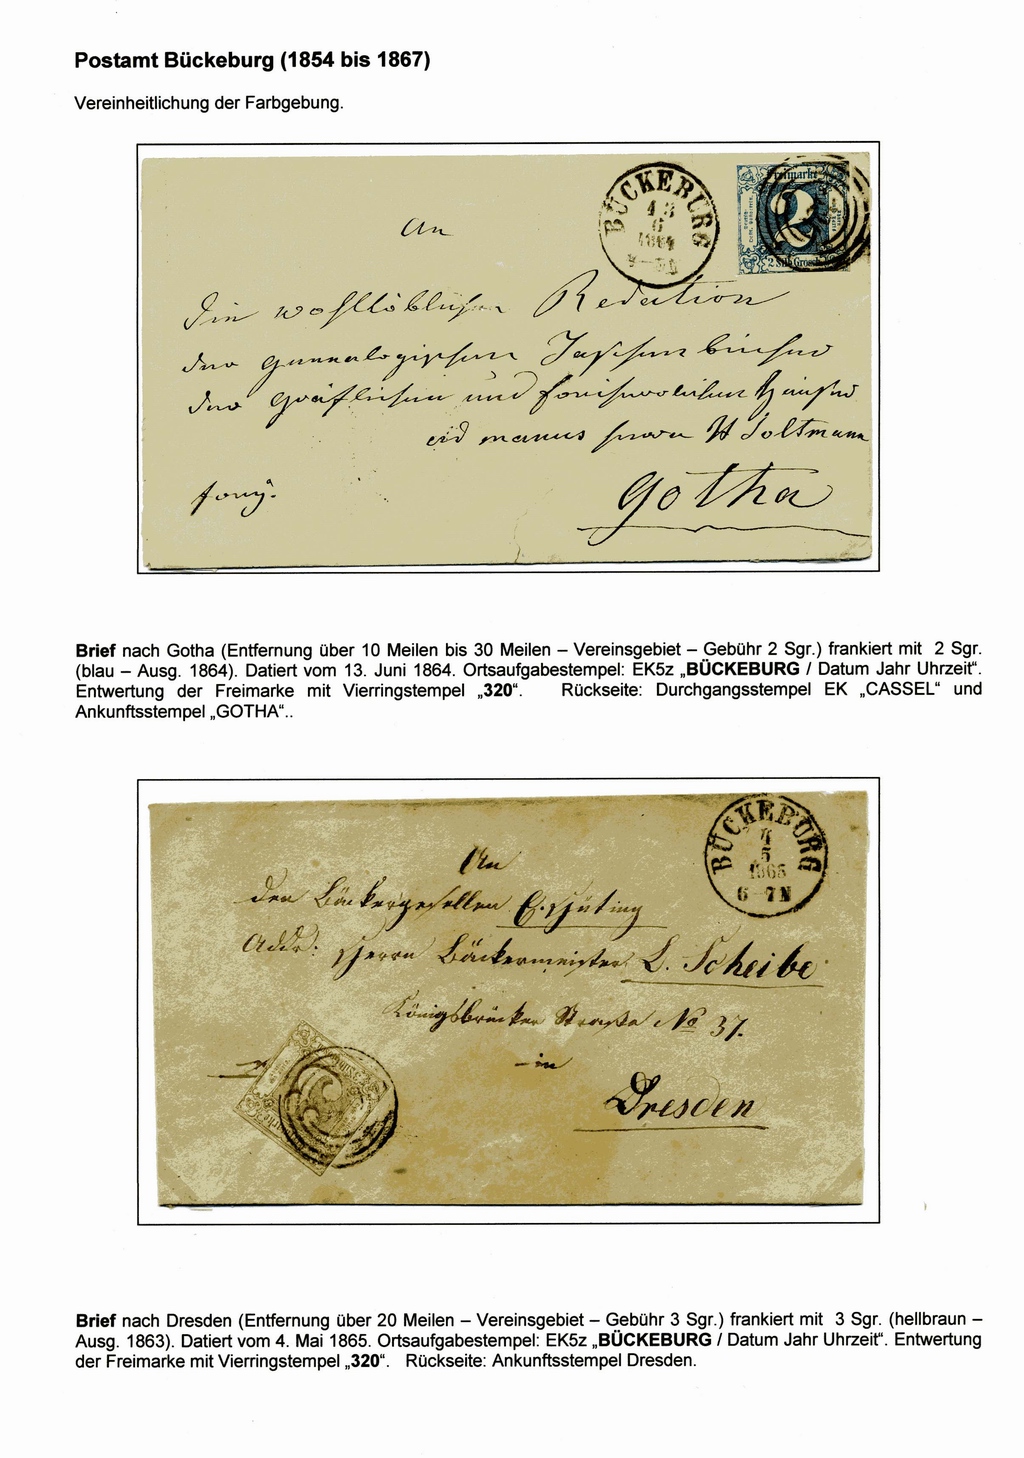 Postamt Bückeburg (1854 bis 1867)
Vereinheitlichung der Farbgebung.
BÜCKEBURG
13
6
1864
Freimarke
2
2 Silb. Grosch.
An
Die wohllöbliche Redaction
der genealogischen Taschenbücher
der Gräflichen und freiherrlichen Häuser
ad manus Herrn H Holtmann
franco.
Gotha
Brief nach Gotha (Entfernung über 10 Meilen bis 30 Meilen – Vereinsgebiet – Gebühr 2 Sgr.) frankiert mit 2 Sgr.
(blau – Ausg. 1864). Datiert vom 13. Juni 1864. Ortsaufgabestempel: EK5z „BÜCKEBURG / Datum Jahr Uhrzeit“.
Entwertung der Freimarke mit Vierringstempel „320“. Rückseite: Durchgangsstempel EK „CASSEL“ und
Ankunftsstempel „GOTHA“..
BÜCKEBURG
4
5
1865
6-7N
An
den Bäckergesellen
Addr: Herrn Bäckermeister L. Scheibe
Königsbrücker Straße No 37.
in
Dresden
Brief nach Dresden (Entfernung über 20 Meilen – Vereinsgebiet – Gebühr 3 Sgr.) frankiert mit 3 Sgr. (hellbraun –
Ausg. 1863). Datiert vom 4. Mai 1865. Ortsaufgabestempel: EK5z „BÜCKEBURG / Datum Jahr Uhrzeit“. Entwertung
der Freimarke mit Vierringstempel „320“. Rückseite: Ankunftsstempel Dresden.